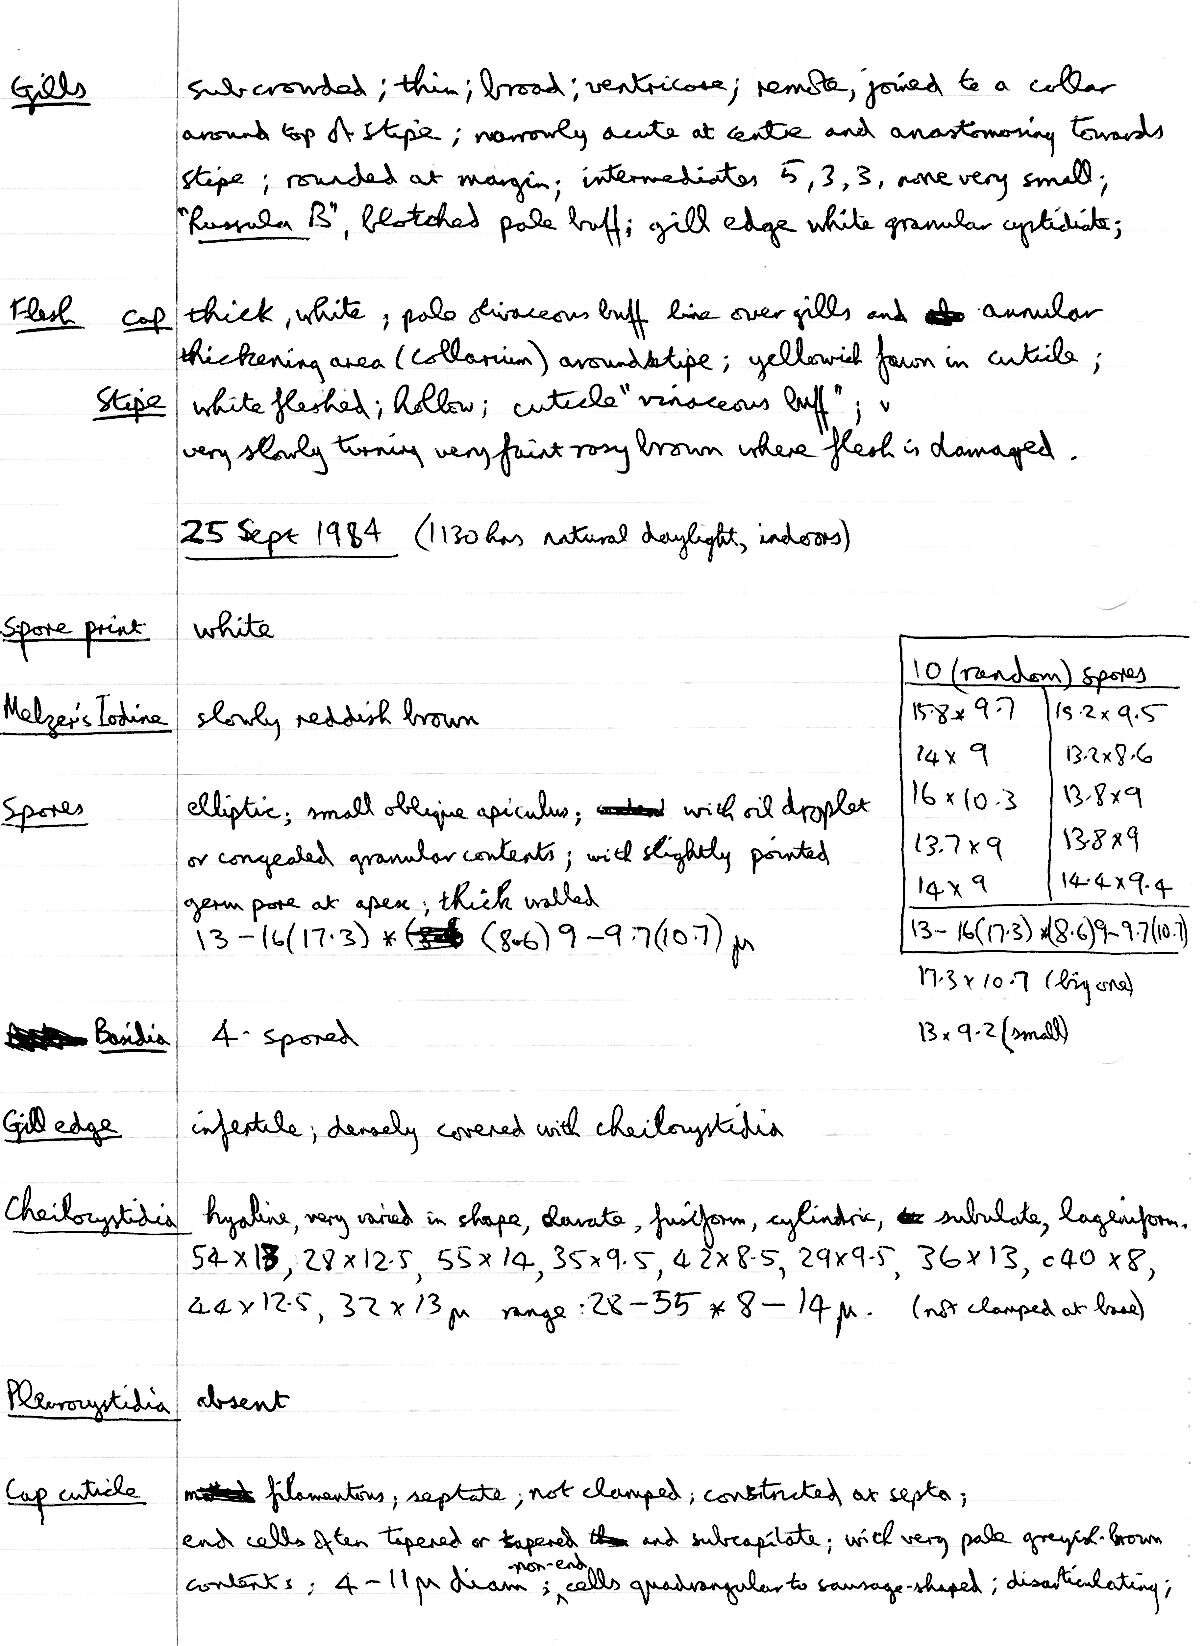 Gills subcrowded; thin; broad; ventricose; remote, joined to a collar
around top of stipe; narrowly acute at centre and anastomosing towards
stipe; rounded at margin; intermediates 5, 3, 3, none very small;
"Russula B", blotched pale buff; gill edge white granular cystidiate;
Flesh cap thick, white; pale olivaceous buff line over gills and annular
thickening area (collarium) around stipe; yellowish fawn in cuticle;
Stipe white fleshed; hollow; cuticle "vinaceous buff"; v
very slowly turning very faint rosy brown where flesh is damaged.
25 Sept 1984 (1130 hrs natural daylight, indoors)
Spore print white
Melzer's Iodine slowly reddish brown
Spores elliptic; small oblique apiculus; with oil droplet
or congealed granular contents; with slightly pointed
germ pore at apex; thick walled
13-16(17.3) * (8.6) 9-9.7(10.7) μ
10 (random) spores
15.8 x 9.7 15.2 x 9.5
14 x 9 13.2 x 8.6
16 x 10.3 13.8 x 9
13.7 x 9 13.8 x 9
14 x 9 14.4 x 9.4
13-16(17.3) * (8.6)9-9.7(10.7)
17.3 x 10.7 (big one)
13 x 9.2 (small)
Basidia 4-spored
Gill edge infertile; densely covered with cheilocystidia
Cheilocystidia hyaline, very varied in shape, clavate, fusiform, cylindric, subulate, lageniform.
54 x 13, 28 x 12.5, 55 x 14, 35 x 9.5, 42 x 8.5, 29 x 9.5, 36 x 13, c40 x 8,
44 x 12.5, 32 x 13 μ range: 28-55 * 8-14 μ. (not clamped at base)
Pleurocystidia absent
Cap cuticle filamentous; septate; not clamped; constricted at septa;
end cells often tapered or tapered and subcapitate; with very pale greyish-brown
contents; 4-11 μ diam; non-end cells quadrangular to sausage-shaped; disarticulating;